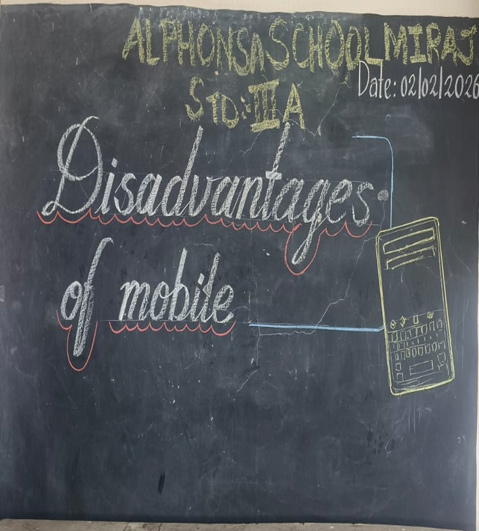 ALPHONSA SCHOOL MIRAJ
Date: 02/02/2026
STD: III A
Disadvantages
of mobile